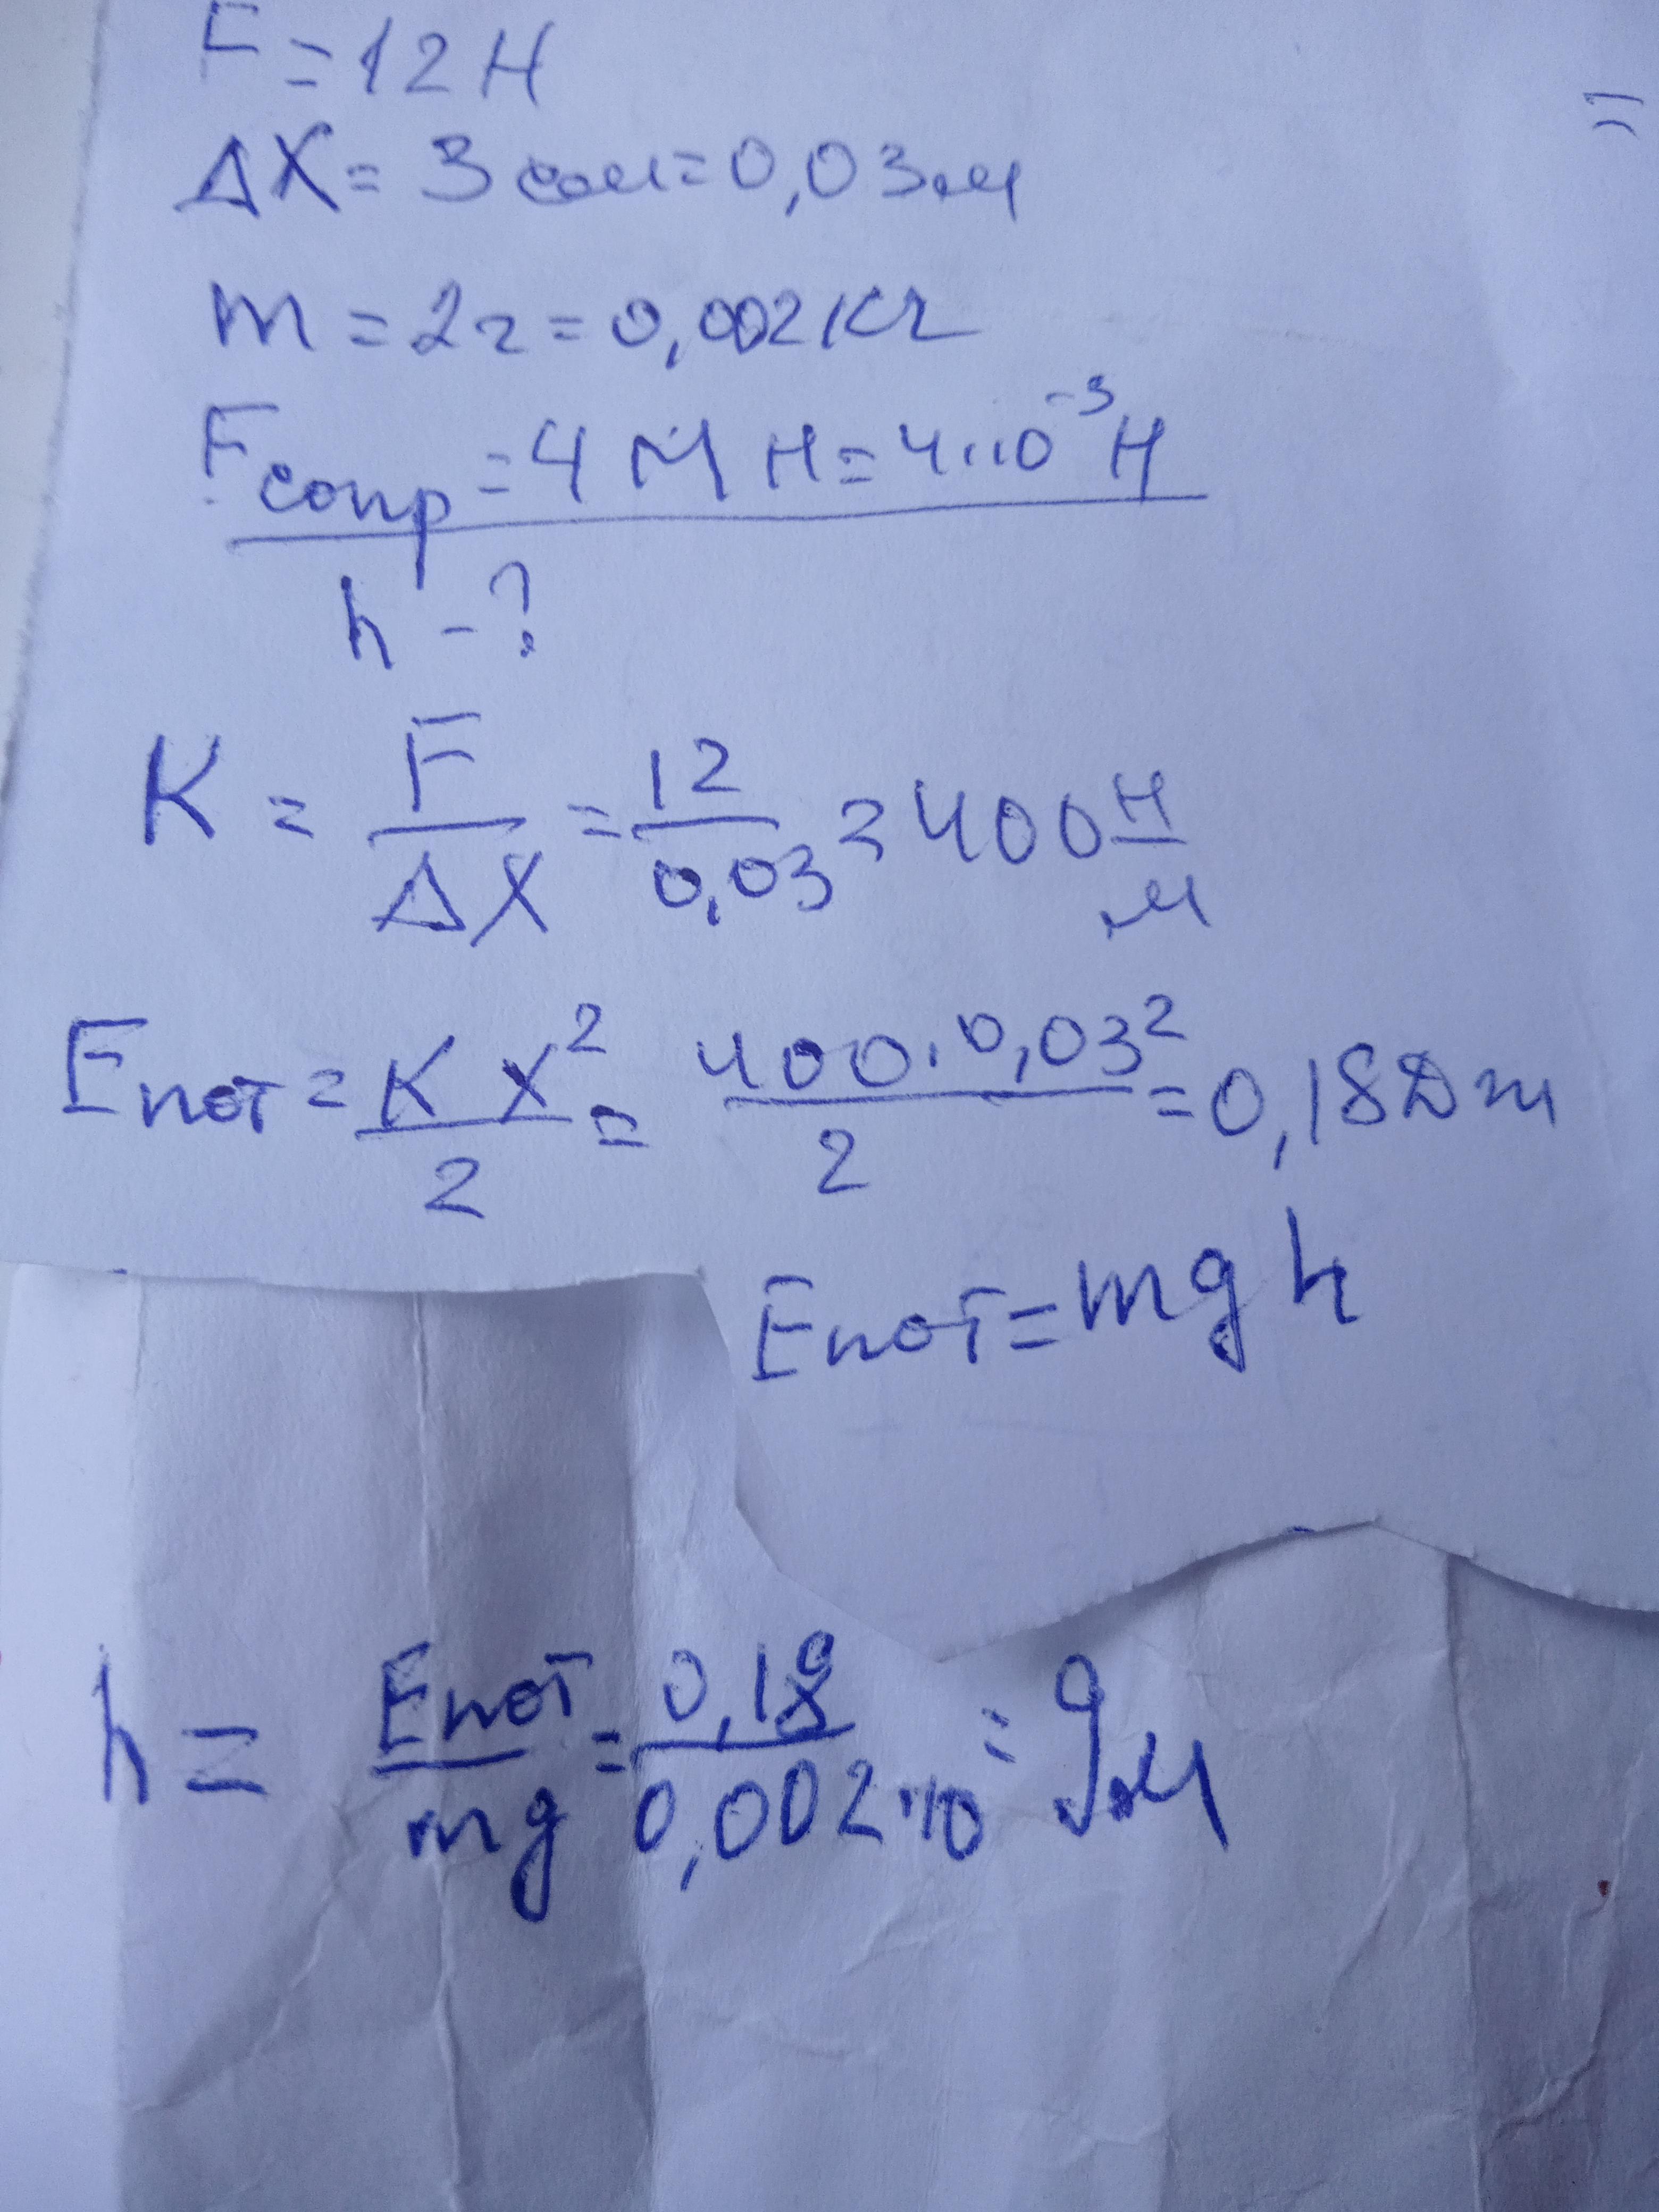 F = 12 Н
ΔX = 3 см = 0,03 м
m = 2г = 0,002 кг
Fсопр = 4 М Н = 4·10⁻³ Н
h - ?
K = F/ΔX = 12/0,03 = 400 Н/м
Eпот = K X²/2 = 400·0,03²/2 = 0,18 Дж
Eпот = mgh
h = Eпот/mg = 0,18/0,002·10 = 9 м